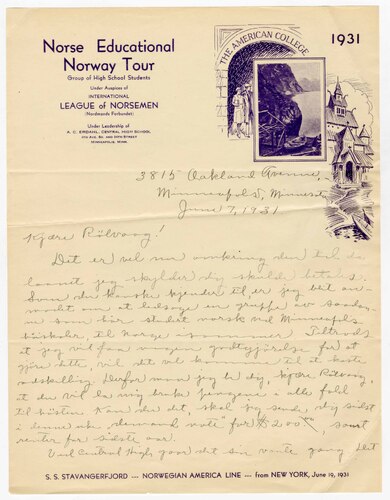 Norse Educational
Norway Tour
Group of High School Students
Under Auspices of
INTERNATIONAL
LEAGUE of NORSEMEN
(Nordmands Forbundet)
Under Leadership of
A. C. ERDAHL, CENTRAL HIGH SCHOOL
4TH AVE. SO. AND 34TH STREET
MINNEAPOLIS, MINN.
THE AMERICAN COLLEGE
1931
3815 Oakland Avenue,
Minneapolis, Minnesota
June 7, 1931
Kjære Rölvaag!
Det er vel nu omkring den tid da
laanet jeg skylder dig skulde betales.
Som du kanske kjender til er jeg blit an-
modt om at ledsage en gruppe av saadan-
ne som har studert norsk ved Minneapolis
höiskoler, til Norge i sommer. Tiltrods
at jeg vil faa nogen godtgjörelse for at
gjöre dette, vil det vel komme til at koste
adskillig. Derfor maa jeg be dig, kjære Rölvaag,
at du vil la mig bruke pengene i alle fald
til hösten. Kan du det, skal jeg sende dig sidst
i denne uke "demand note" for $200.00, samt
renter for sidste aar.
Ved Central High goar det sin vante gang. Det
S. S. STAVANGERFJORD — NORWEGIAN AMERICA LINE — from NEW YORK, June 19, 1931